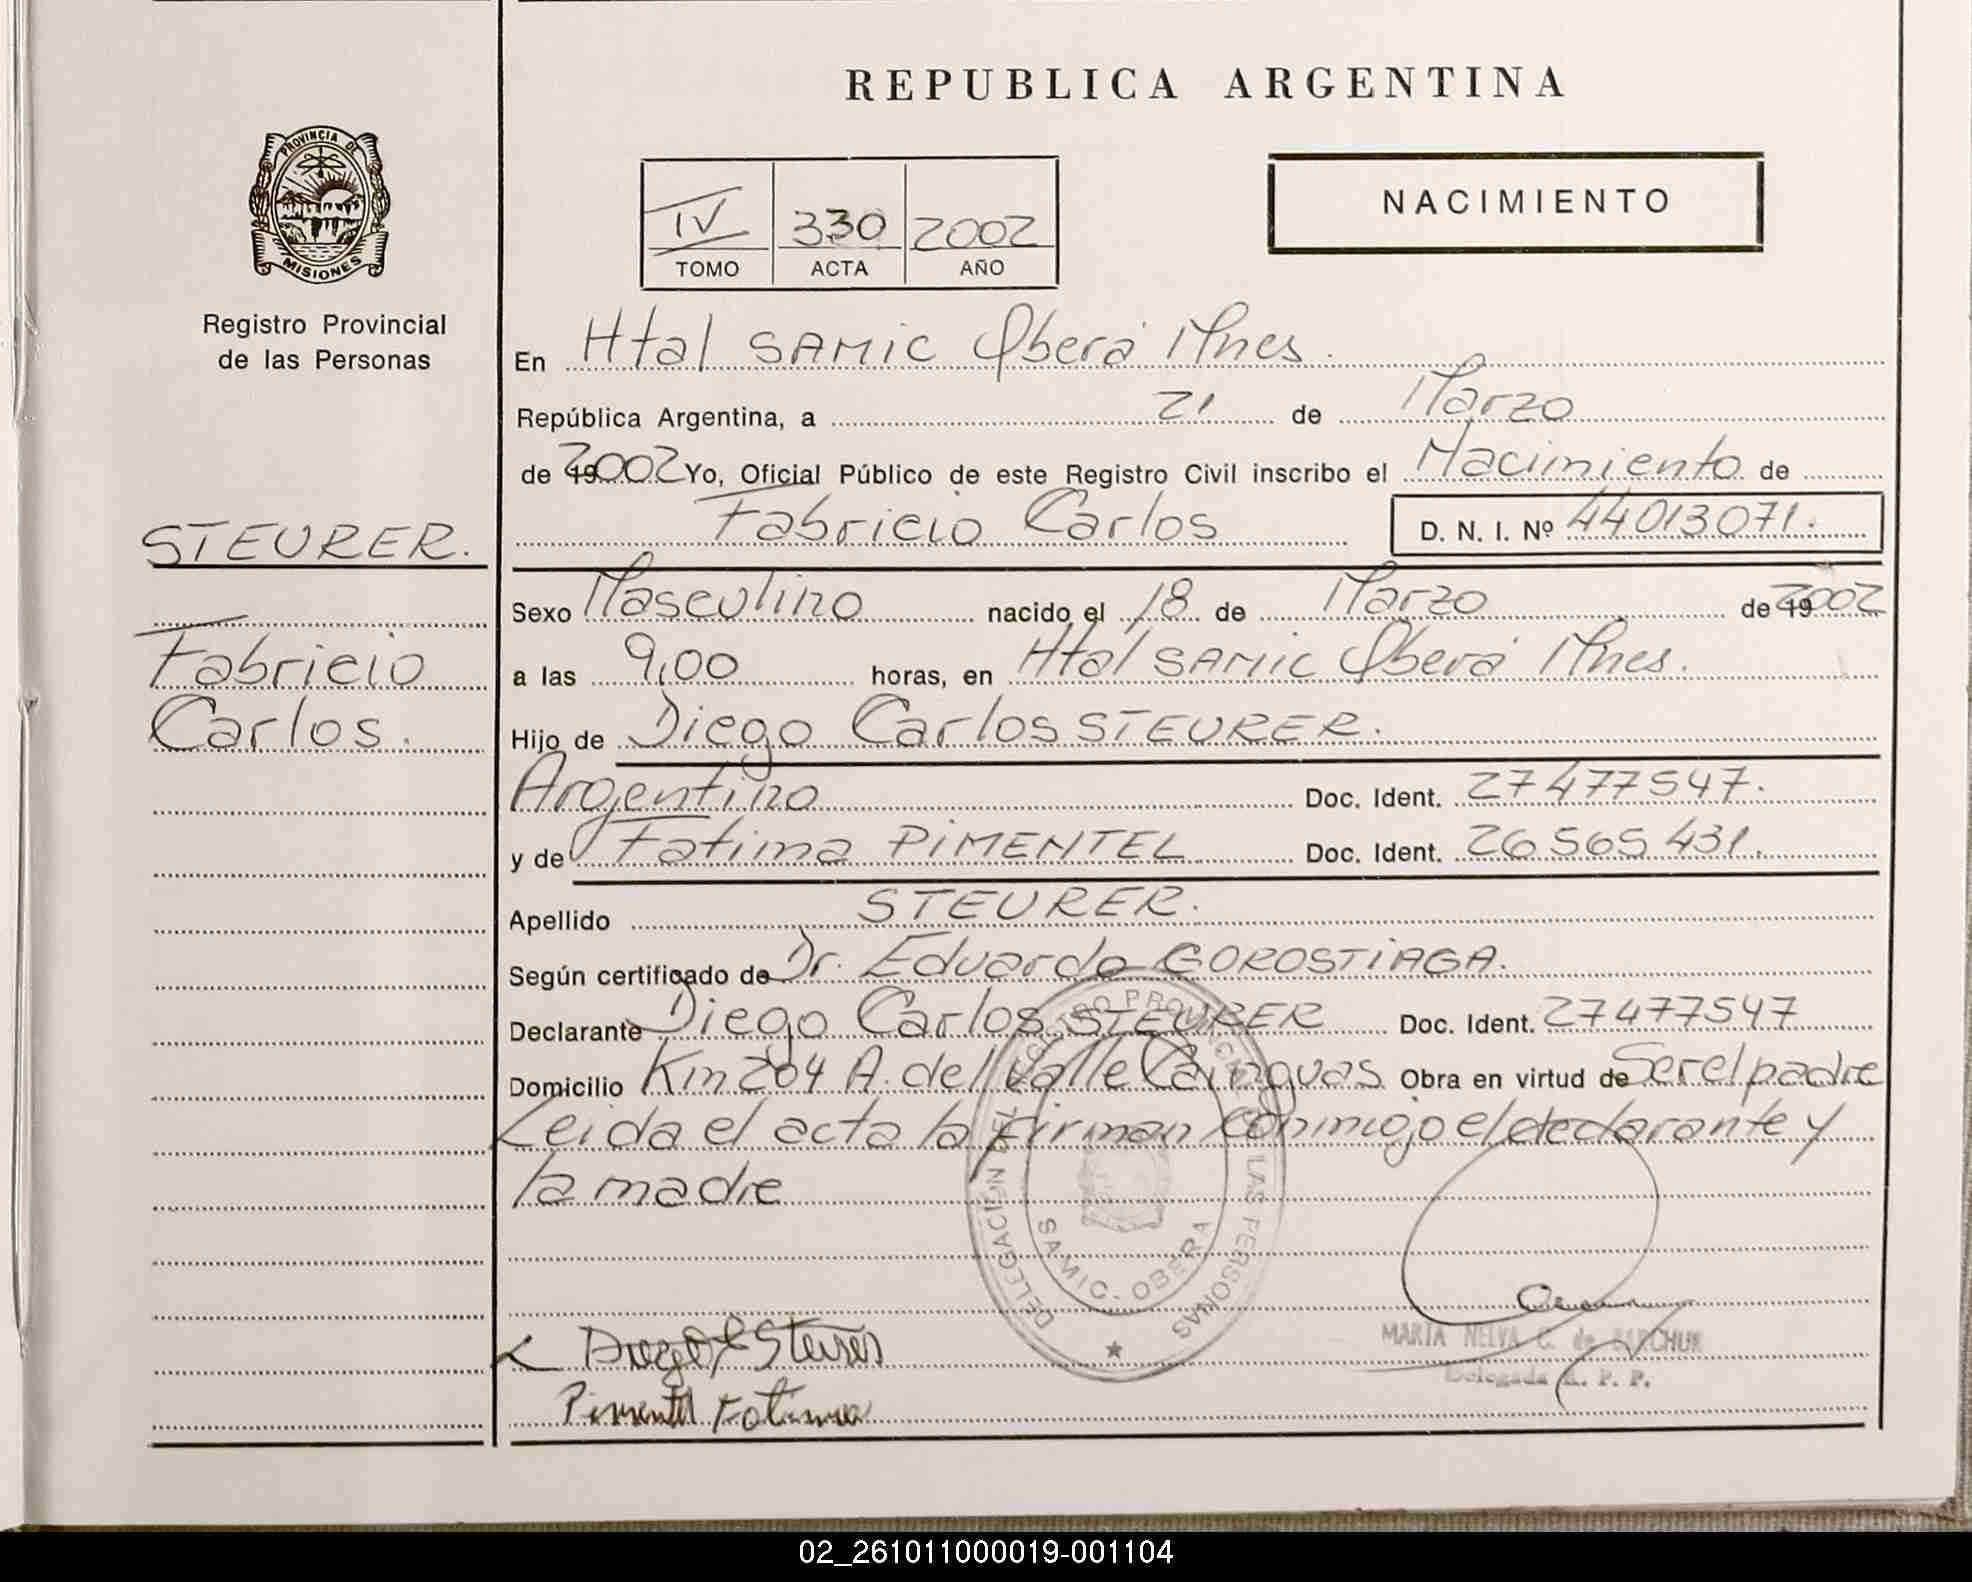 REPUBLICA ARGENTINA
PROVINCIA DE
MISIONES
Registro Provincial
de las Personas
IV 330 2002
TOMO ACTA AÑO
NACIMIENTO
En Htal SAMIC Oberá Mnes.
República Argentina, a 21 de Marzo
de 2002 Yo, Oficial Público de este Registro Civil inscribo el Nacimiento de
Fabricio Carlos D. N. I. Nº 44013071.
STEURER.
Fabricio
Carlos.
Sexo Masculino nacido el 18 de Marzo de 19 2002
a las 9,00 horas, en Htal SAMIC Oberá Mnes.
Hijo de Diego Carlos STEURER.
Argentino Doc. Ident. 27477547.
y de Fatima PIMENTEL Doc. Ident. 26565431.
Apellido STEURER.
Según certificado de Dr. Eduardo GOROSTIAGA.
Declarante Diego Carlos STEURER Doc. Ident. 27477547
Domicilio Km 204 A. del Valle Cainguas Obra en virtud de Ser el padre
Leida el acta la firman conmigo el declarante y
la madre
DELEGACIÓN DEL REGISTRO PROVINCIAL DE LAS PERSONAS
SAMIC - OBERA
Diego C Steurer
Pimentel Fatima
MARIA NELVA C. de BARCHUK
Delegada R. P. P.
02_261011000019-001104